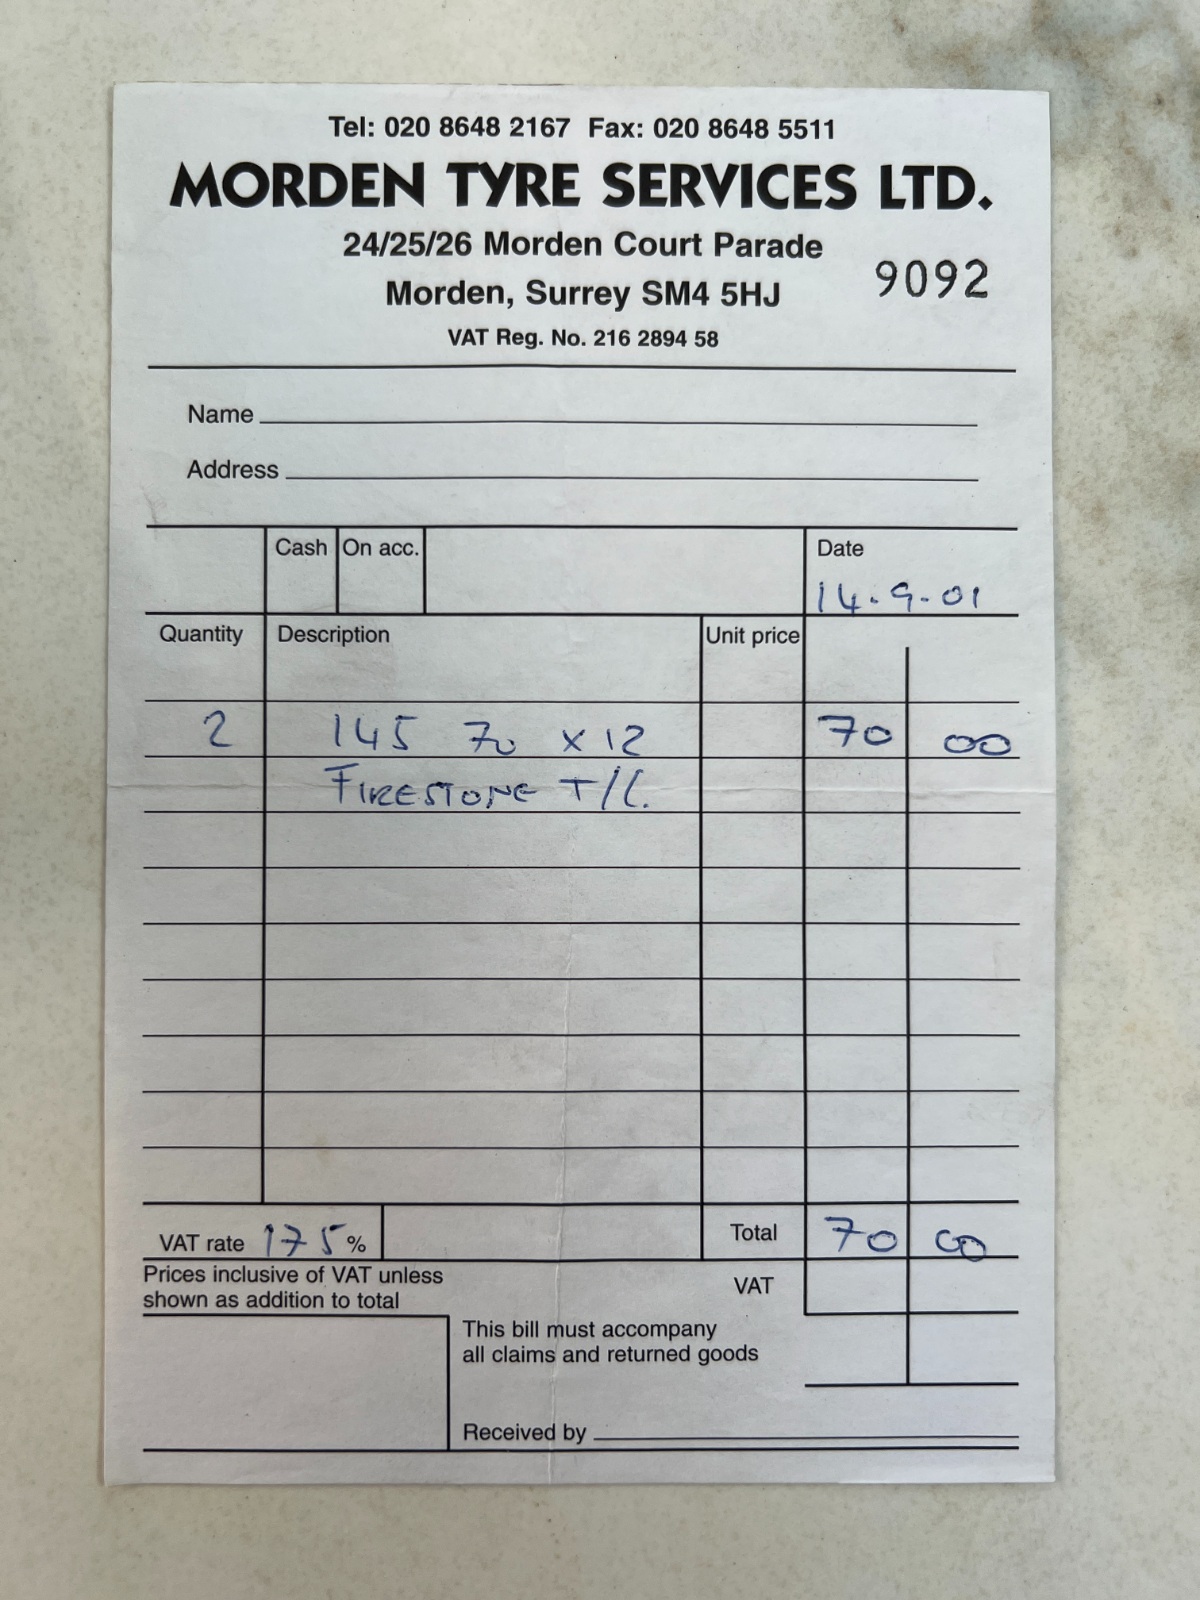 Tel: 020 8648 2167 Fax: 020 8648 5511
MORDEN TYRE SERVICES LTD.
24/25/26 Morden Court Parade
Morden, Surrey SM4 5HJ
9092
VAT Reg. No. 216 2894 58
Name
Address
Cash On acc. Date
14.9.01
Quantity Description Unit price
2 145 70 x 12 70 00
FIRESTONE T/L.
VAT rate 175 % Total 70 00
Prices inclusive of VAT unless
shown as addition to total
VAT
This bill must accompany
all claims and returned goods
Received by